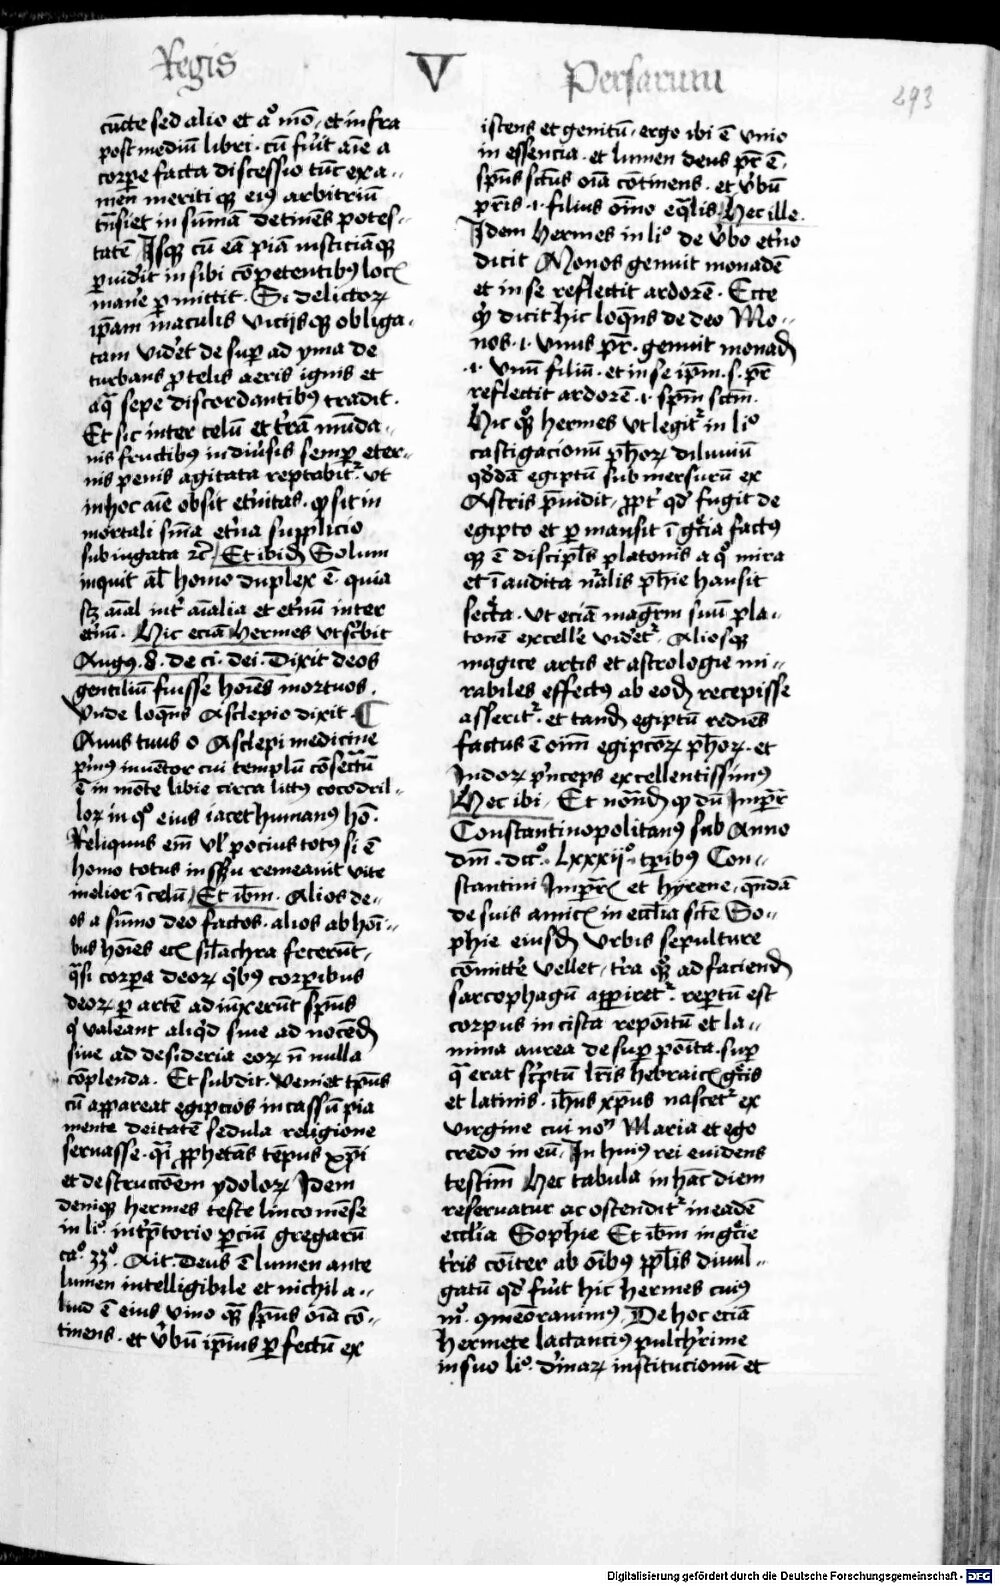 Regis V Persarum
293
cũcte sed alio et aº mõ · et infra
post mediũ libri · cũ fu'it aīe a
corpe facta discessio tūc exa-
men meritiq; eiꝰ arbitriũ
tñsiet in sūmā detinēs potes-
tatē Isq; cũ eā piā iusticiāq;
puid'it in sibi cōpetentibꝰ locꝭ
man'e pmittit · Si delictoꝝ
ip̄am maculis viciisq; obliga-
tam vid'et desup ad yma de
turbans ꝓcelis aeris ignis et
aq̄ sepe discordantibꝰ tradit ·
Et sic inter celũ et t'rā mūda-
nis fructibꝰ in diu'sis semp eter-
nis penis agitata reptabit᷑ · vt
in hoc aīe obsit et'nitas · qͥ sit in
mortali sñia et'na supplicio
subiugata ꝛc̄ Et ibidē Solum
inquit aīal homo duplex ē quia
scꝫ aīal int' aīalia et et'nũ inter
et'nũ · Hic eciā Hermes vt scͥbit
Augꝰ · 8 · de ci · dei · Dixit deos
gentiliũ fuisse hoīes mortuos ·
Vnde loqn̄s Asclepio dixit · ¶
Auus tuus o Asclepi medicine
pͥmꝰ inuētor cui templũ cōsecͣtũ
ē in mōte libie circa littꝰ cocodril-
loꝝ in qº eius iacet humanꝰ hō ·
Reliquus em̄ vl' pocius totꝰ si ē
homo totus in sēsu remeauit vite
melior ī celũ Et ibm̄ · Alios de-
os a sūmo deo factos · alios ab hoī-
bus hoīes ecꝭ sil'achra fecerūt ·
q̄si corpa deoꝝ qͥbꝰ corpibus
deoꝝ p artē adiũxerūt sp̄ūs
qͥ valeant aliqͥd siue ad nocēdͫ
siue ad desideria eoꝝ n̄ nulla
cōplenda · Et subdit · veniet tp̄us
cũ appareat egipcios incassũ pia
mente deitatē sedula religione
seruasse · qͣi ꝓphetās tēpus xp̄i
et destruccōem ydoloꝝ Idem
deniq; hermes teste linconiēse
in liº · int'p̄torio pciũ gregarũ
caº · 33º · Ait · Deus ē lumen ante
lumen intelligibile et nichil a-
liud ē eius vnio qͣ sp̄ūs oīa cō-
tinens · et v'bũ ip̄ius pfectũ ex
istens et genitũ · ergo ibi ē vnio
in essencia · et lumen deus pr̄ ē ·
sp̄ūs sctūs oīa cōtinens · et v'bũ
pr̄is · i · filius oīno eq̄lis Hec ille ·
Idem Hermes in liº de v'bo et'no
dicit Monos genuit monadē
et in se reflectit ardorē · Ecce
qͩ dicit hic loqn̄s de deo Mo-
nos · i · vnus pr̄ · genuit monadͫ
· i · vnũ filiũ · et in se ip̄m · s · pr̄
reflectit ardorē · i · sp̄m sctm̄ ·
Hic qͦꝫ hermes vt legit᷑ in liº
castigacionũ ph̄oꝝ diluuiũ
qͦddā egiptũ submersurũ ex
Astris p̄uidit · ꝓpt' qͩ fugit de
egipto et pmansit ī gͣcia factꝰ
qꝫ ē discipl̄s platonis a qº mira
et ī audita nͣlis ph̄ie hausit
secͣta · vt eciā magr̄m suũ pla-
tonē excelle' vid'et᷑ · Aliosq;
magice artis et astrologie mi-
rabiles effectꝰ ab eodͫ recepisse
asserit᷑ · et tandͫ egiptũ rediēs
factus ē oīm egipcōꝝ ph̄oꝝ · et
Indoꝝ pͥnceps excellentissimꝰ
Hec ibi · Et notādͫ qͩ dũ Impr̄
Constantinopolitanꝰ sub Anno
dm̄ · dccº · Lxxxijº · tp̄ibus Con-
stantini Imp̄rꝭ et hyrene · qn̄dā
de suis amicꝭ in eccl̄ia scte So-
phie eiusdͫ vrbis sepulture
cōmitte' vellet · t'ra qͣꝫ ad faciendͫ
sarcophagũ appiret᷑ · reptũ est
corpus in cista repoītũ et la-
mina aurea desup poīta · sup
qͣ erat scͥptũ lr̄is hebraicꝭ gͣcis
et latinis · ih̄us xp̄us nascet᷑ ex
virgine cui noⁿ Maria et ego
credo in eũ · In huiꝰ rei euidens
testim̄ Hec tabula in hāc diem
reseruatur ac ostendit᷑ in eadē
eccl̄ia Sophie Et ibm̄ in gͣcie
t'ris cōiter ab oībus ppl̄is diuul-
gatũ qͩ fu'it hic hermes cuiꝰ
mº · ꝯmēorauimꝰ · De hoc eciā
Hermete lactanciꝰ pulch'rime
in suo liº · d'inaꝝ institucionũ et
Digitalisierung gefördert durch die Deutsche Forschungsgemeinschaft - DFG